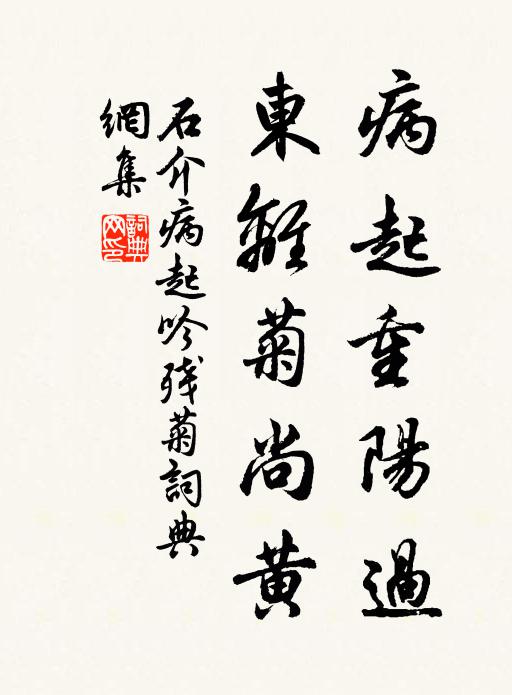 病起重陽過
東離菊尚黃
石介病起吟殘菊詞典
網集
詞典
网印